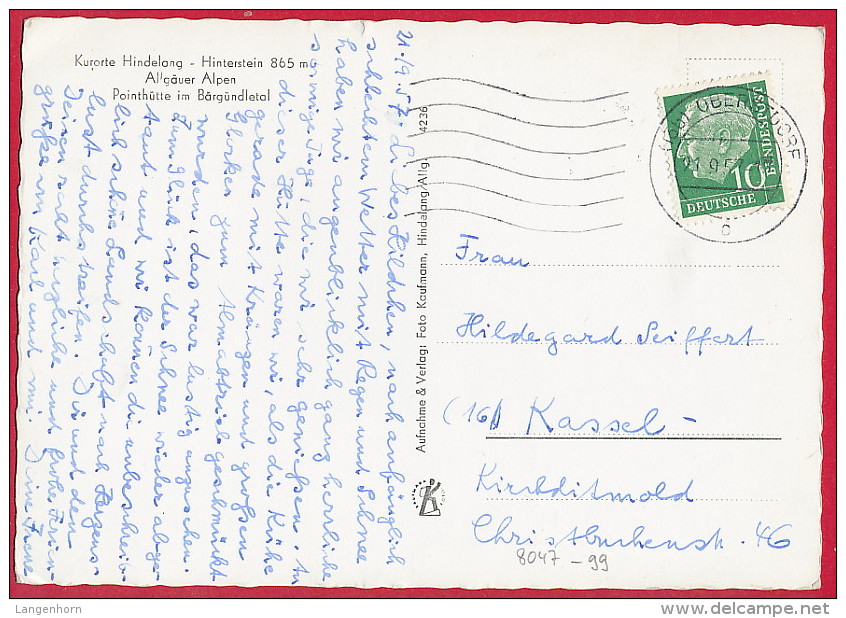 Kurorte Hindelang - Hinterstein 865 m
Allgäuer Alpen
Pointhütte im Bärgündletal
21.9.57. Liebes Hildchen, nach anfänglich
schlechtem Wetter mit Regen und Schnee
haben wir augenblicklich ganz herrliche
sonnige Tage, die wir sehr genießen. In
dieser Hütte waren wir, als die Kühe
gerade mit Kränzen und großen
Glocken zum Almabtrieb geschmückt
wurden, das war lustig anzusehen.
Zum Glück ist der Schnee wieder abge-
taut und wir können die unbeschreib-
lich schöne Landschaft nach Herzens-
lust durchstreifen. Dir und den
Deinen recht herzliche und frohe Ferien-
grüße von Karl und mir. Deine Irene
Aufnahme & Verlag: Foto Kaufmann, Hindelang/Allg. 4236
21.9.57
DEUTSCHE
BUNDESPOST
10
c
Frau
Hildegard Seiffert
(16) Kassel-
Kirchditmold
Christbuchenstr. 46
8047-99
Langenhorn
delcampe.net